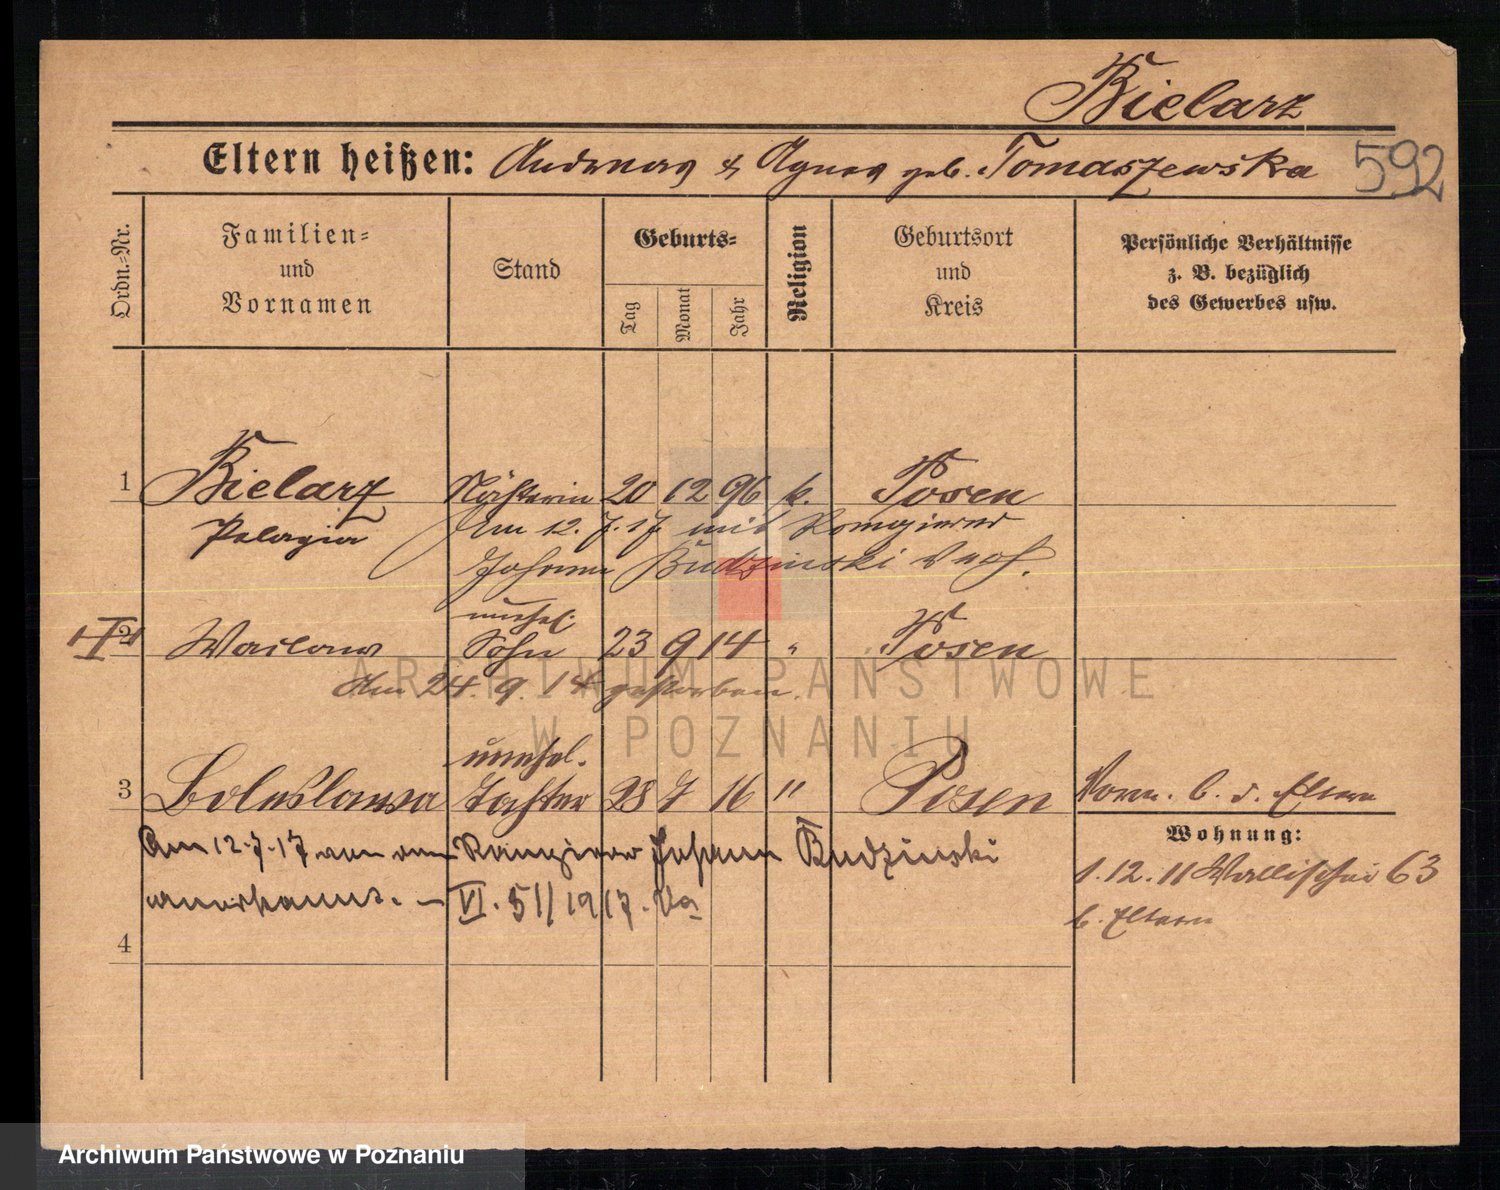 Bielarz
Eltern heißen: Andreas & Agnes geb. Tomaszewska
592
Ordn.-Nr.
Familien-
und
Vornamen
Stand
Geburts-
Tag
Monat
Jahr
Religion
Geburtsort
und
Kreis
Persönliche Verhältnisse
z. B. bezüglich
des Gewerbes usw.
1 Bielarz Nähterin 20 12 96 k. Posen
Pelagia Am 12.7.17 mit Rangierer
Johann Budzinski verh.
unehel.
2 Waclaw Sohn 23 9 14 " Posen
Am 24.9.14 gestorben.
unehel.
3 Boleslawa Tochter 28 7 16 " Posen
Vorm. b. d. Eltern
Am 12.7.17 von dem Rangierer Johann Budzinski
anerkannt. – VI. 51/1917.
Wohnung:
1.12.11 Wallischei 63
b. Eltern
4
ARCHIWUM PAŃSTWOWE
W POZNANIU
Archiwum Państwowe w Poznaniu